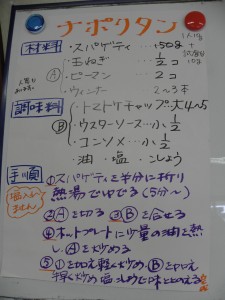 ナポリタン
材料
・スパゲティ…150g
1人分
Ⓐ
・玉ねぎ…1/2コ
・ピーマン…2コ
・ウィンナー…2〜3本
調味料
Ⓑ
・トマトケチャップ…大4〜5
・ウスターソース…小1/2
・コンソメ…小1/2
・油・塩・こしょう
手順
塩入れません
①スパゲティを半分に折り
熱湯でゆでる(5分〜)
②Ⓐを切る ③Ⓑを合せる
④ホットプレートに少量の油を熱
し、Ⓐを炒める
⑤①を加え軽く炒め、Ⓑを加え
軽く炒め塩こしょうで味をととのえる